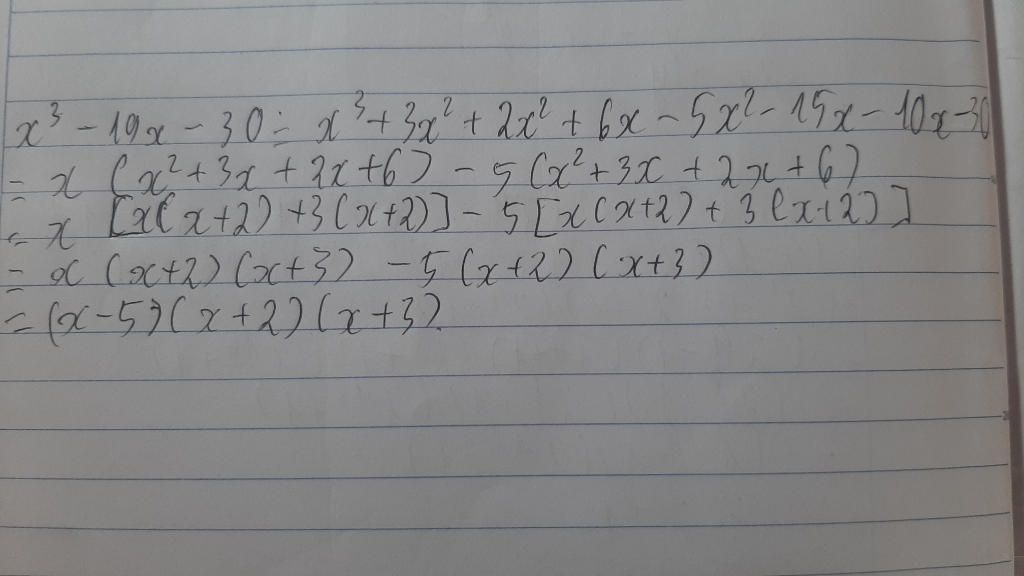 x³ - 19x - 30 = x³ + 3x² + 2x² + 6x - 5x² - 15x - 10x - 30
= x (x² + 3x + 2x + 6) - 5 (x² + 3x + 2x + 6)
= x [x(x+2) + 3(x+2)] - 5 [x(x+2) + 3(x+2)]
= x (x+2) (x+3) - 5 (x+2) (x+3)
= (x-5) (x+2) (x+3)